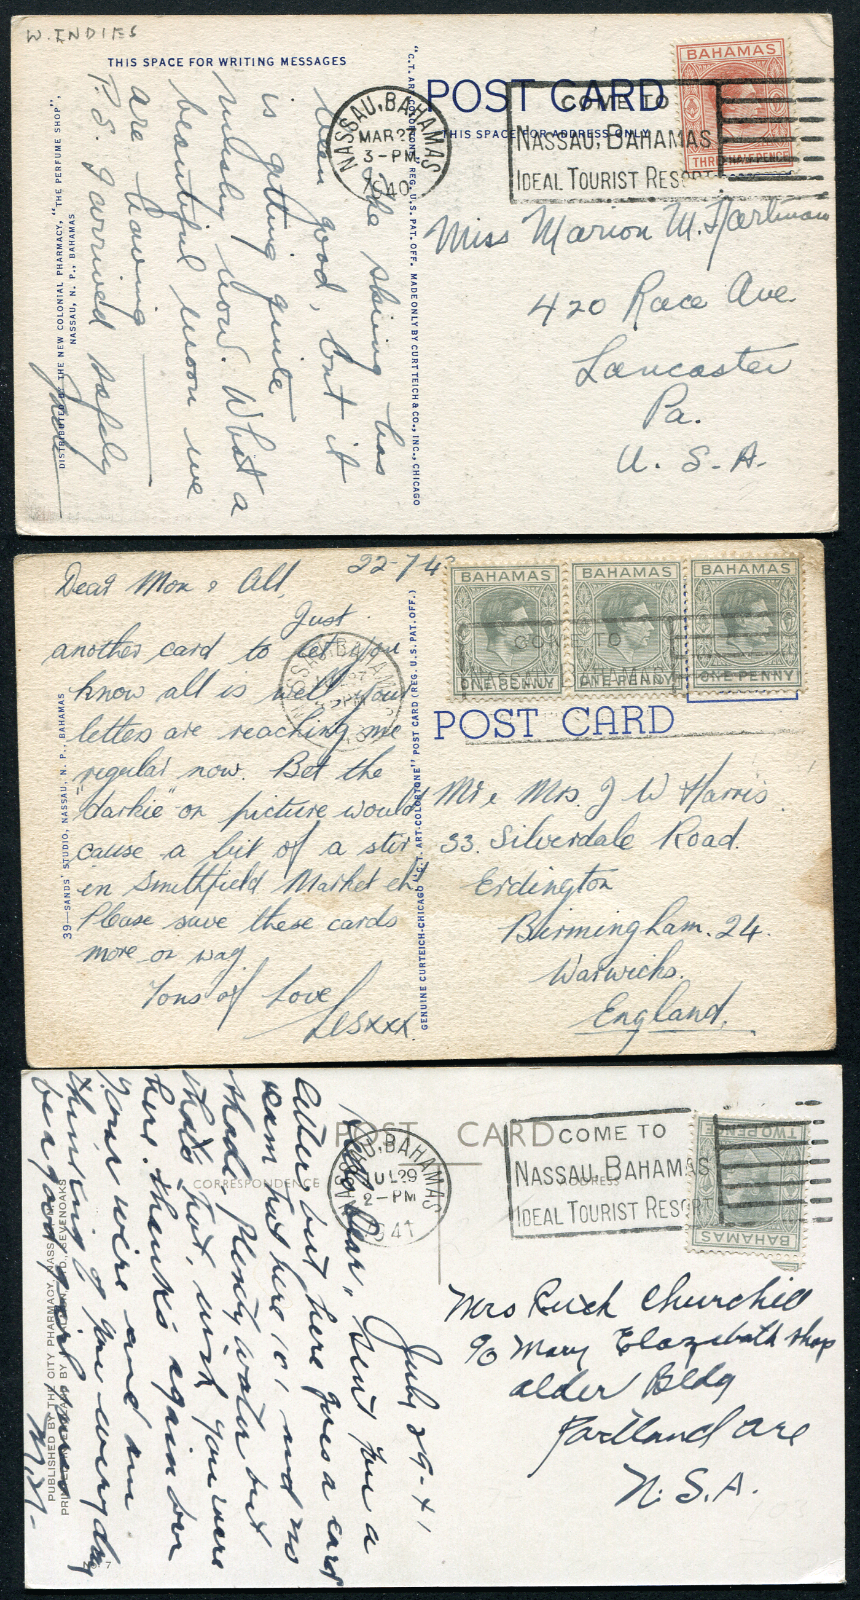 W. INDIES
THIS SPACE FOR WRITING MESSAGES
The skiing has
been good, but it
is getting quite
mushy now. What a
beautiful moon we
are having
P.S. I arrived safely
Jack
DISTRIBUTED BY THE NEW COLONIAL PHARMACY, "THE PERFUME SHOP",
NASSAU, N. P., BAHAMAS
"C.T. ART-COLORTONE" REG. U.S. PAT. OFF. MADE ONLY BY CURT TEICH & CO., INC., CHICAGO
POST CARD
THIS SPACE FOR ADDRESS ONLY
NASSAU, BAHAMAS
MAR 27
3-PM
1940
COME TO
NASSAU, BAHAMAS
IDEAL TOURIST RESORT
BAHAMAS
THREE HALF PENCE
Miss Marion M. Hartman
420 Race Ave.
Lancaster
Pa.
U. S. A.
22-7-43
Dear Mom & All,
Just
another card to let you
know all is well. Your
letters are reaching me
regular now. Bet the
"darkie" on picture would
cause a bit of a stir
in Smithfield Market eh?
Please save these cards
more on way
Tons of Love
Les xxx.
39—SANDS' STUDIO, NASSAU, N. P., BAHAMAS
GENUINE CURTEICH-CHICAGO "C.T. ART-COLORTONE" POST CARD (REG. U.S. PAT. OFF.)
NASSAU, BAHAMAS
27
3-PM
BAHAMAS
ONE PENNY
BAHAMAS
ONE PENNY
BAHAMAS
ONE PENNY
COME TO
NASSAU, BAHAMAS
POST CARD
Mr & Mrs. J W Harris.
33. Silverdale Road.
Erdington
Birmingham. 24.
Warwicks.
England.
POST CARD
CORRESPONDENCE
ADDRESS
NASSAU, BAHAMAS
JUL 29
2-PM
1941
COME TO
NASSAU, BAHAMAS
IDEAL TOURIST RESORT
TWO PENCE
BAHAMAS
July 29-41
Dear, Sent you a
letter but here goes a card
warm but here 101 and no
shade plenty water but
thats just, wish you were
here. thanks again for
your wire and am
thinking of you every day
be a good girl
PUBLISHED BY THE CITY PHARMACY, NASSAU
SEVENOAKS
Mrs Ruth Churchill
c/o Mary Elazabath shop
alder Bldg
Portland ore
N. S. A.